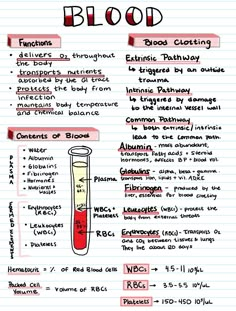 BLOOD
Functions
• delivers O₂ throughout
the body
• transports nutrients
absorbed by the GI tract
• protects the body from
infection
• maintains body temperature
and chemical balance
Blood Clotting
Extrinsic Pathway
↳ triggered by an outside
trauma
Intrinsic Pathway
↳ triggered by damage
to the internal vessel wall
Common Pathway
↳ both extrinsic/intrinsic
lead to the common path.
Contents of Blood
PLASMA
• Water
• Albumin
• Globulins
• Fibrinogen
• Hormones
• Nutrients +
Wastes
FORMED ELEMENTS
• Erythrocytes
(RBCs)
• Leukocytes
(WBCs)
• Platelets
Plasma
WBCs +
Platelets
RBCs
Albumin - most abundant,
transports fatty acids + steroid
hormones, affects BP + blood vol.
Globulins - alpha, beta + gamma
Fibrinogen - produced by the
liver, essential for blood clotting
Leukocytes (WBCs) - protect the
body from external threats
Erythrocytes (RBCs) - Transports O2
and CO₂ between tissues & lungs
They live about 120 days
Hematocrit = % of Red Blood Cells
Packed Cell
Volume = volume of RBCs
WBCs → 4.5-11
RBCs → 3.5-5.5
Platelets → 150-450